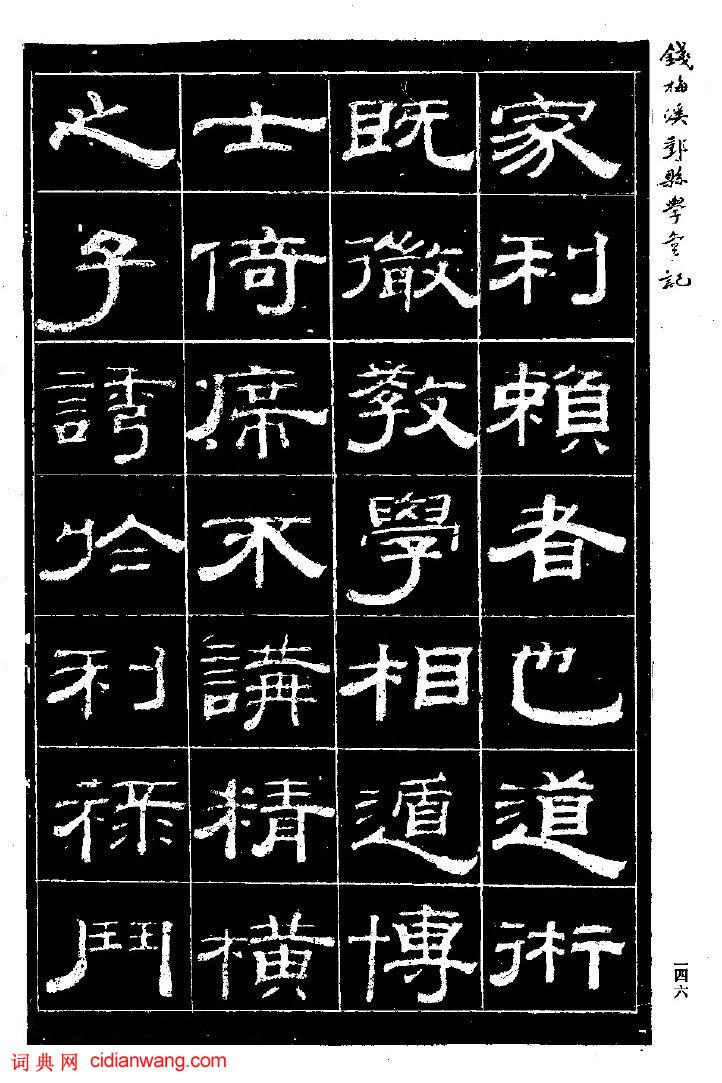 錢梅溪鄞縣學記
家利賴者也道術
既微教學相遁博
士倚席不講精横
之子誘於利祿鬥
一四六
词典网 cidianwang.com